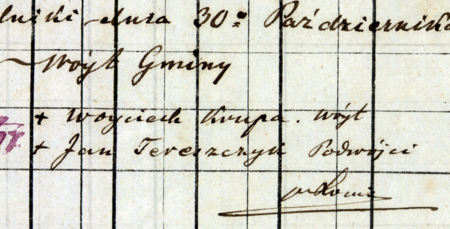 dnia 30º Października
Wójt Gminy
+ Woyciech Krupa. Wójt
+ Jan Tereszczyk Podwójci